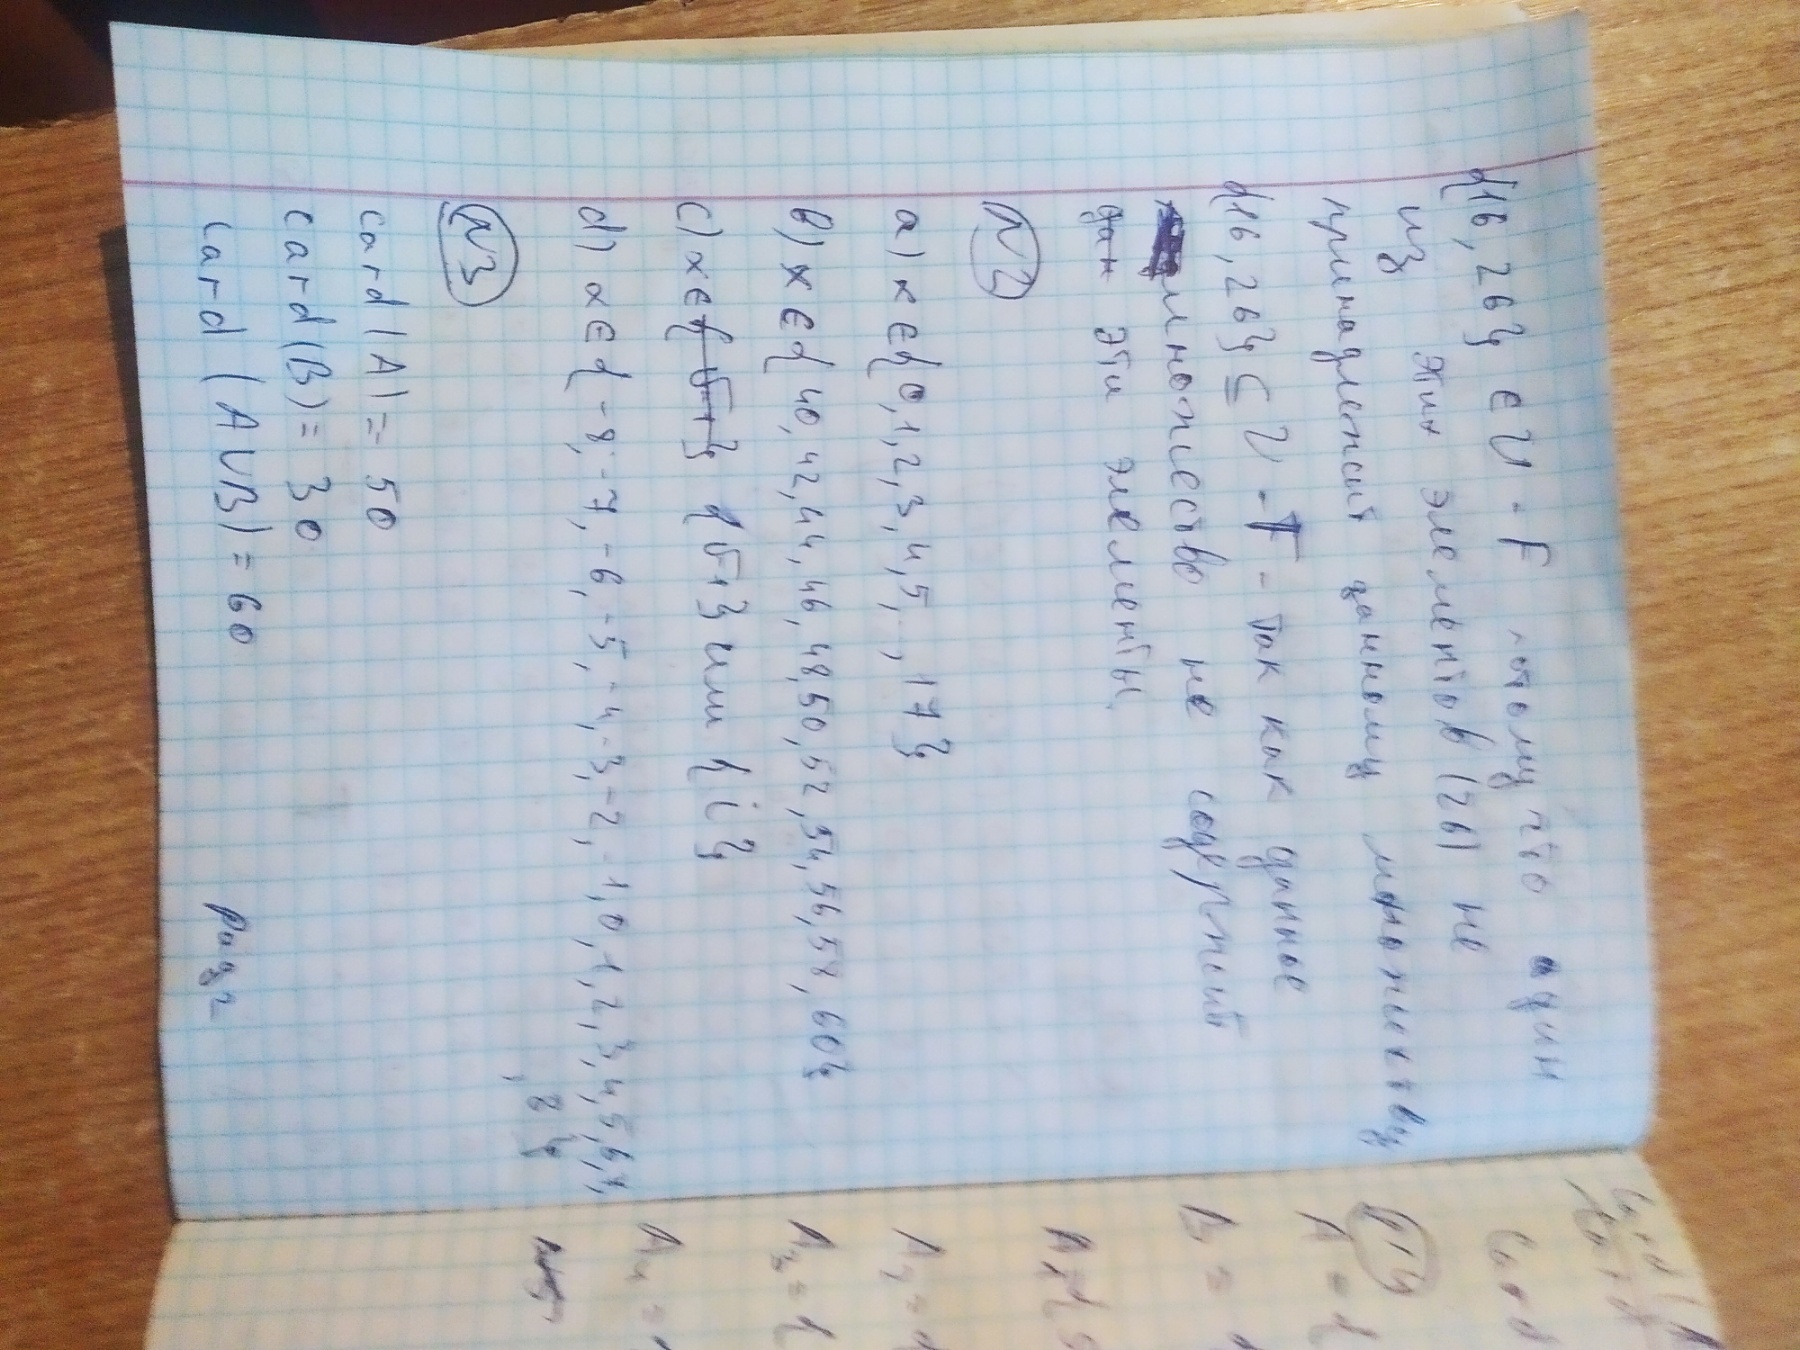 {16, 26} ∈ U - F потому что один
из этих элементов (26) не
принадлежит данному множеству
{16, 26} ⊆ U - F - так как данное
множество не содержит
эти элементы
№2
a) x ∈ {0, 1, 2, 3, 4, 5, , 17}
b) x ∈ {40, 42, 44, 46, 48, 50, 52, 54, 56, 58, 60}
c) x ∈ {√-1} или {i}
d) x ∈ {-8, -7, -6, -5, -4, -3, -2, -1, 0, 1, 2, 3, 4, 5, 6, 7,
, 8}
№3
card (A) = 50
card (B) = 30
card (A ∪ B) = 60
Card
№4
A = {
B = {
A2 = {
A3 = {
A4 = {